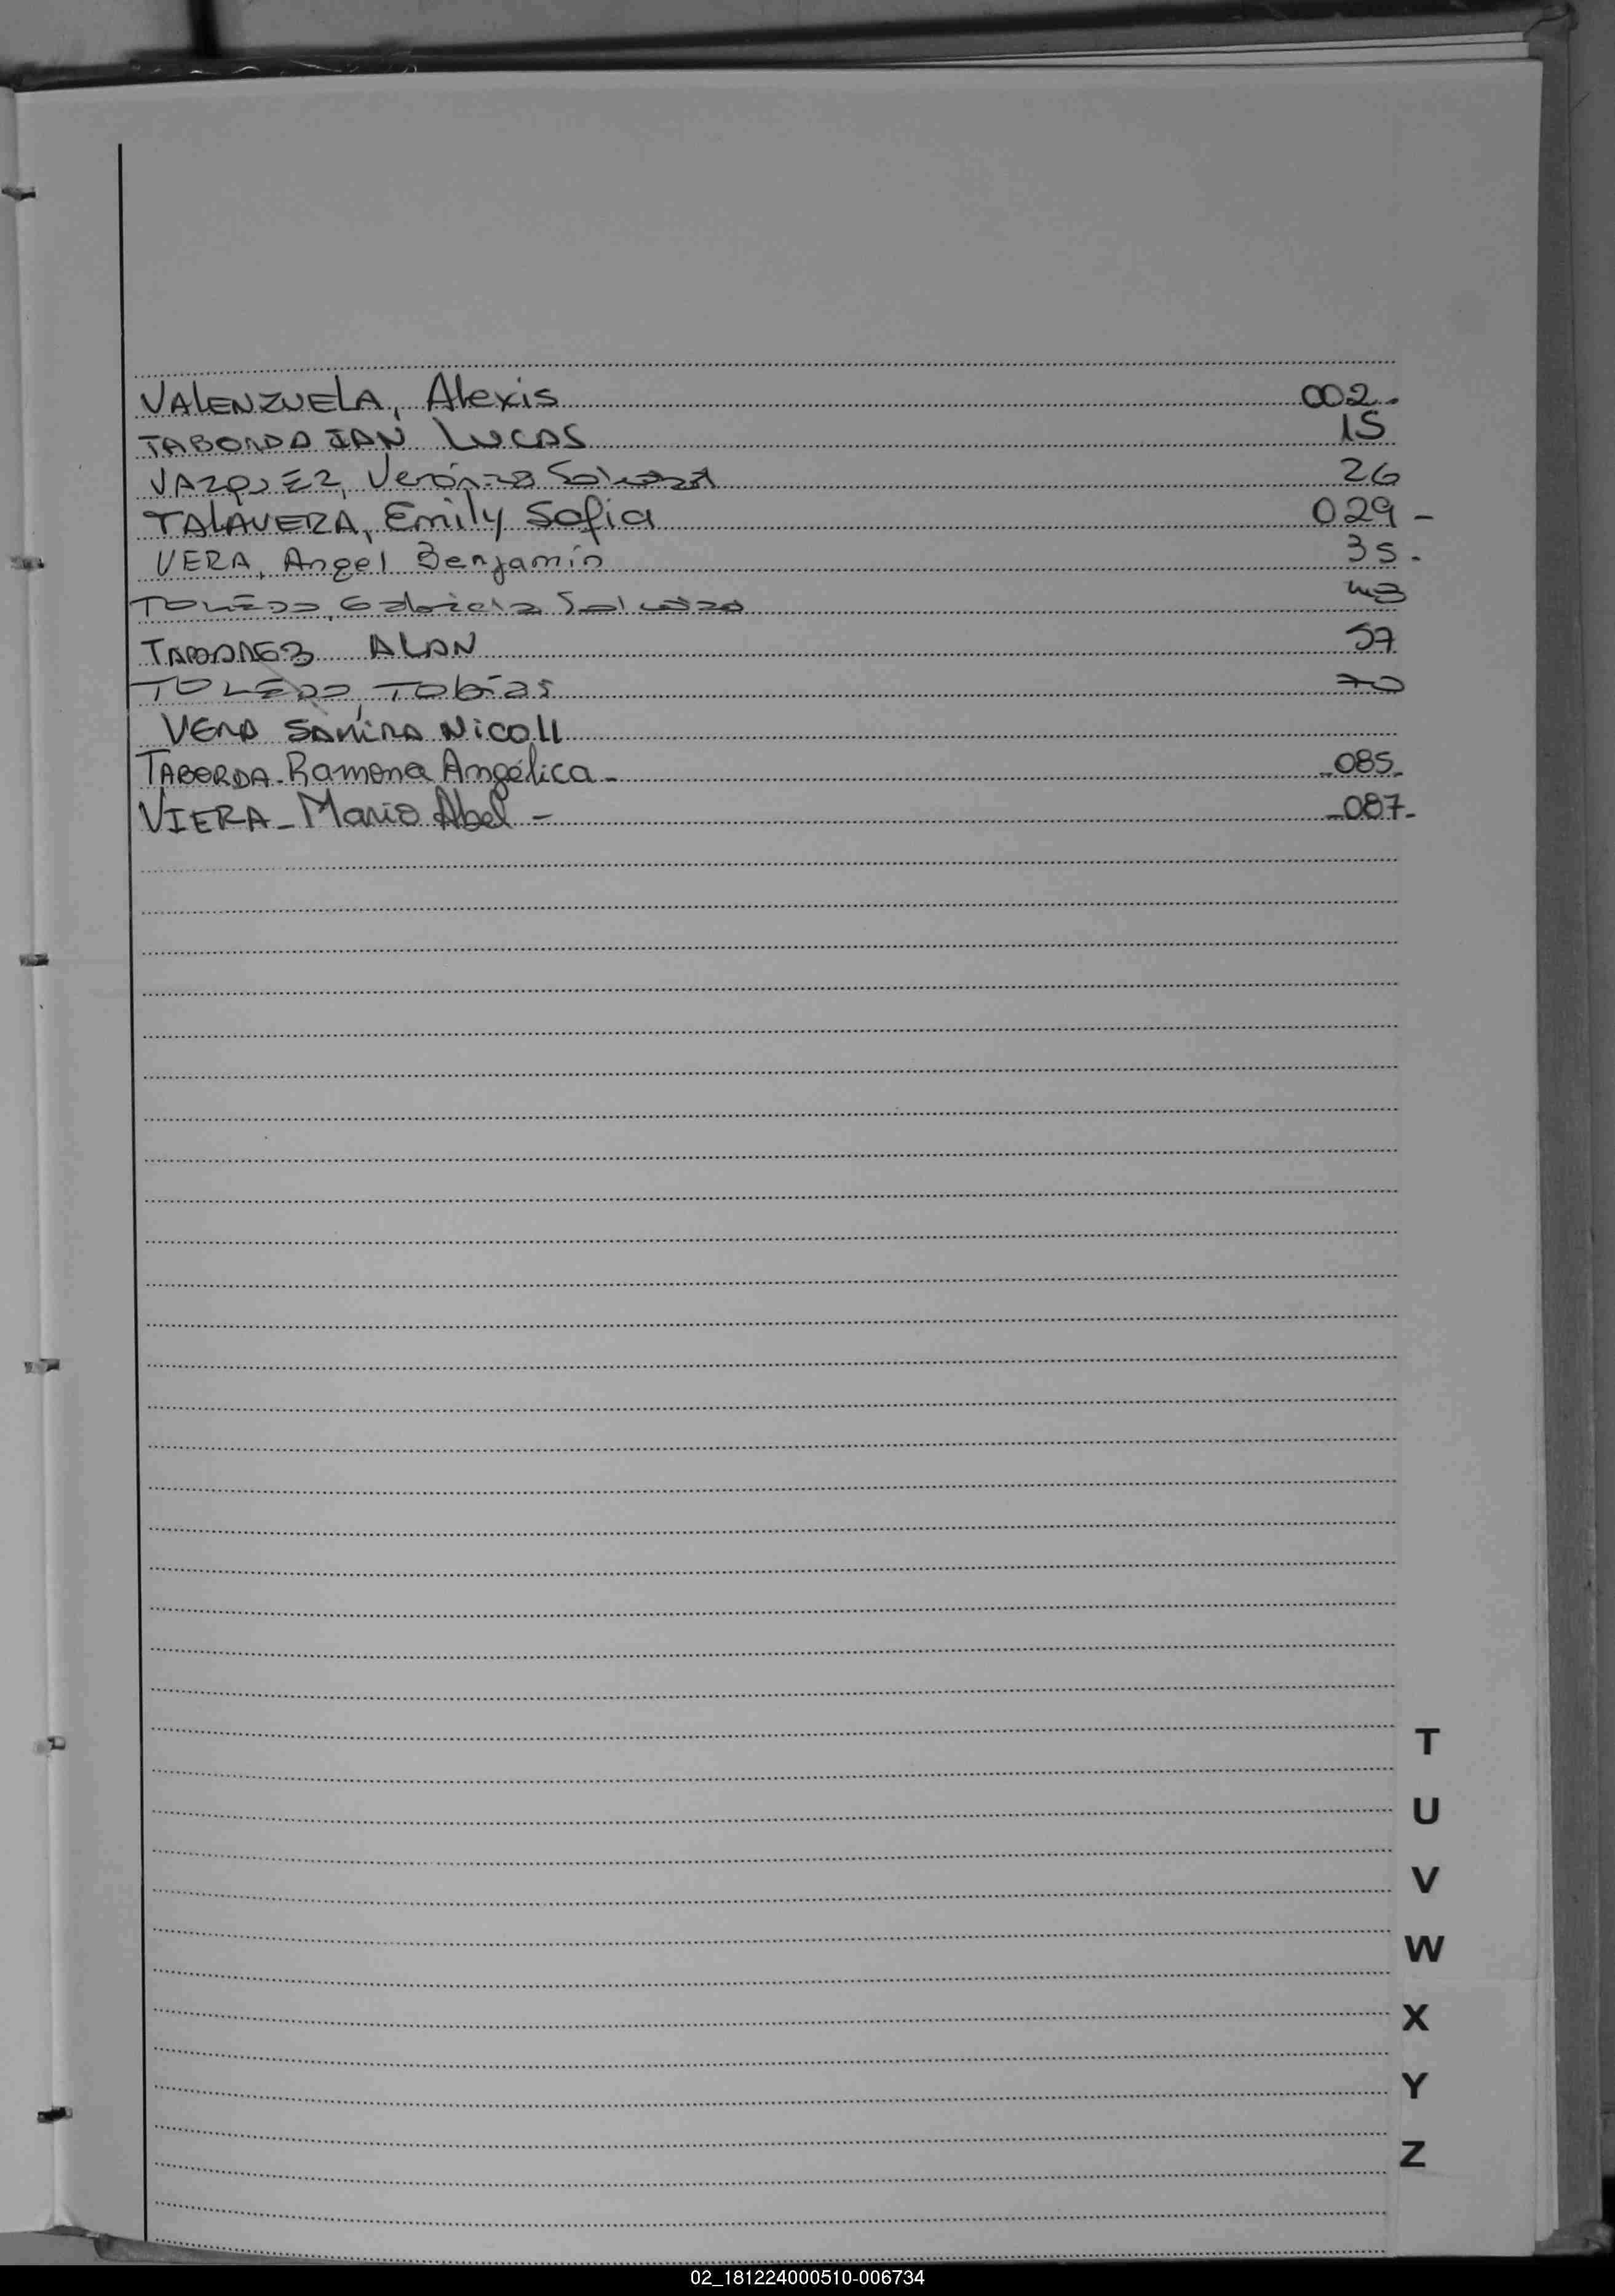 VALENZUELA, Alexis 002.
TABORDA IAN LUCAS 15
VAZQUEZ, Verónica Soledad 26
TALAVERA, Emily Sofia 029 -
VERA, Angel Benjamín 35.
TOLEDO, Gabriela Soledad 43
ALAN 57
TOLEDO, Tobías 70
VERA SAMIRA Nicoll
TABORDA - Ramona Angélica - -085-
VIERA - Mario Abel - -087-
T
U
V
W
X
Y
Z
02_181224000510-006734